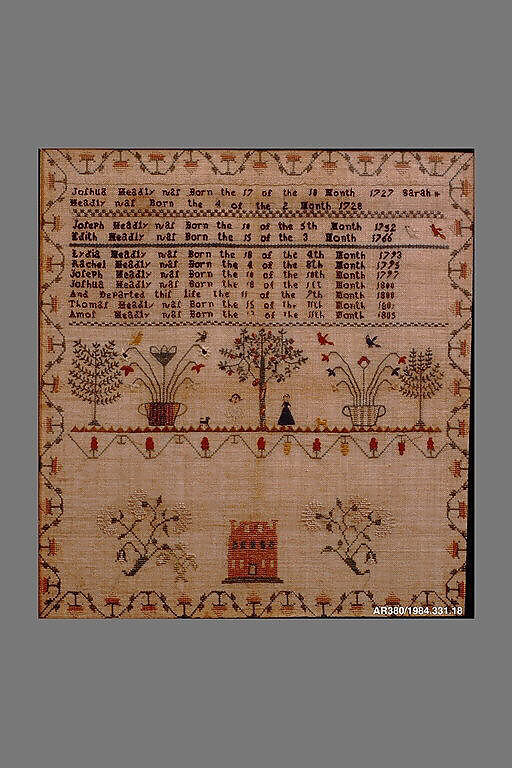 Joſhua Headly waſ Born the 17 of the 10 Month 1727 Sarah
Headly waſ Born the 4 of the 2 Month 1728
Joſeph Headly waſ Born the 10 of the 5th Month 1752
Edith Headly waſ Born the 15 of the 3 Month 1766
Lydia Headly waſ Born the 18 of the 4th Month 1793
Rachel Headly waſ Born the 4 of the 8th Month 1795
Joſeph Headly waſ Born the 10 of the 10th Month 1797
Joſhua Headly waſ Born the of the Month 1800
And Departed thiſ life the 11 of the 9th Month 1800
Thomaſ Headly waſ Born the 15 of the 11th Month
Amoſ Headly waſ Born the of the Month 1805
AR380/1984.331.18